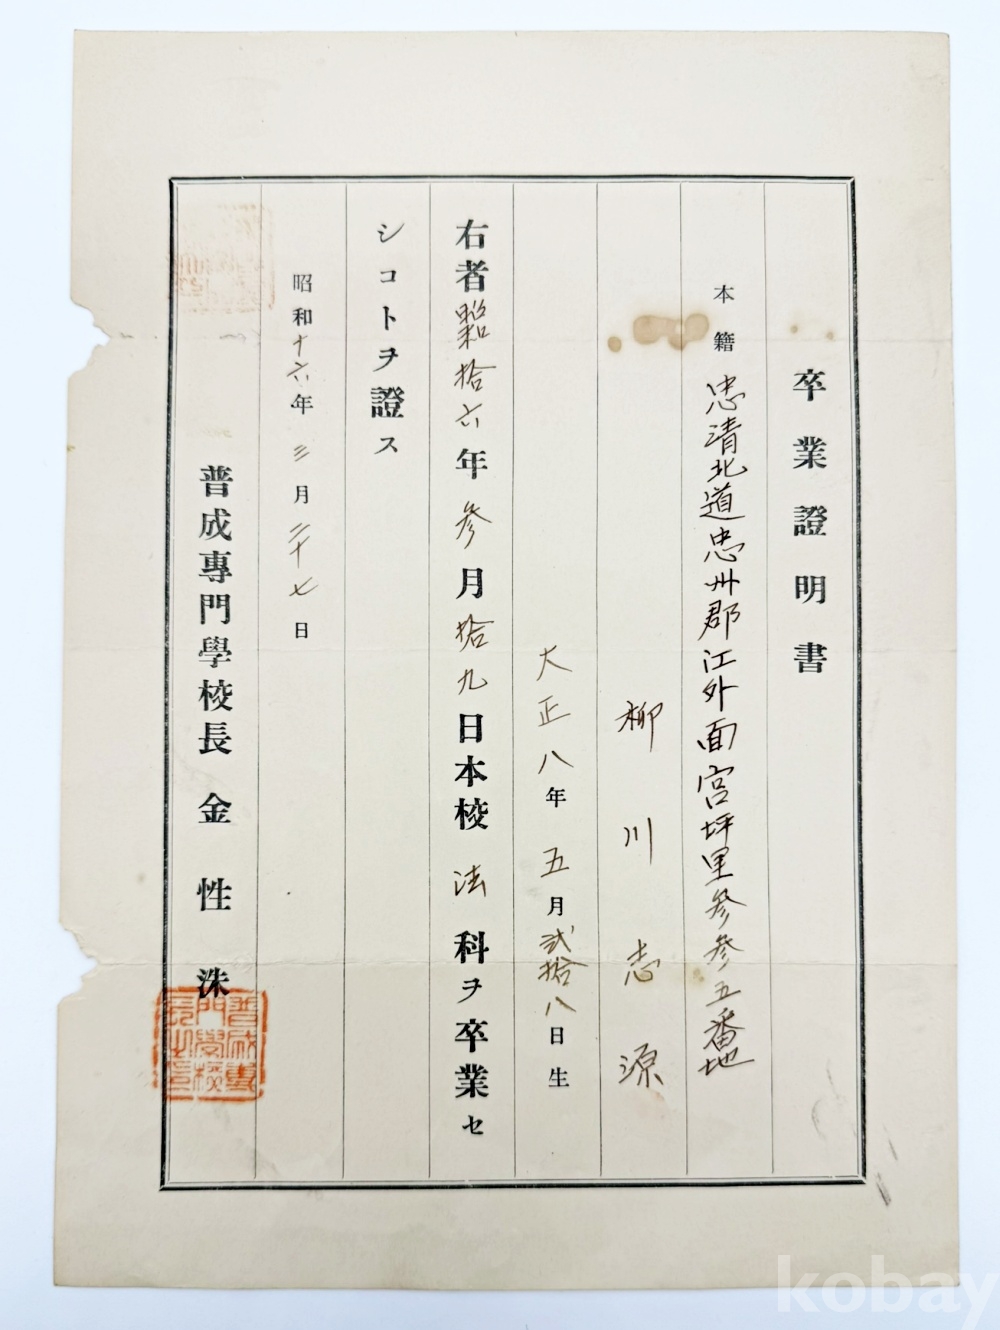 卒業證明書
本籍 忠清北道忠州郡江外面宮坪里參參五番地
柳川志源
大正八年五月貳拾八日生
右者昭和拾六年參月拾九日本校法科ヲ卒業セ
シコトヲ證ス
昭和十六年三月二十七日
普成專門學校長 金性洙
普成專門學校長之印
kobay